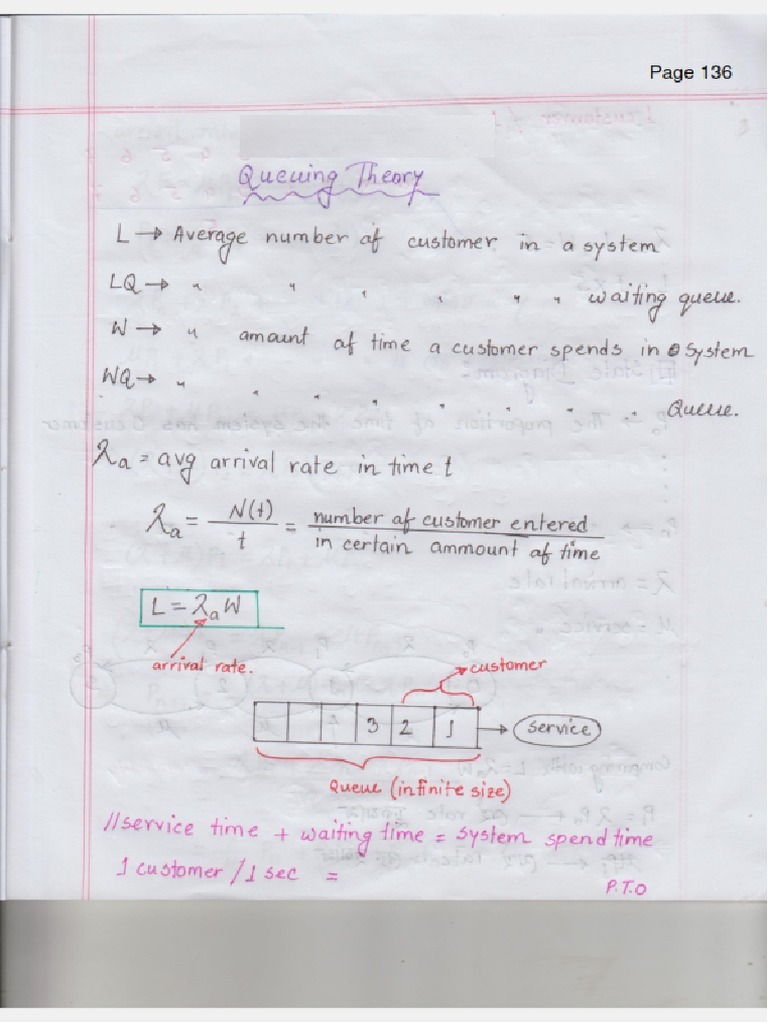 Page 136
Queuing Theory
L → Average number of customer in a system
LQ → " " " " " " waiting queue.
W → " amount of time a customer spends in a system
WQ → " " " " " " " Queue.
λa = avg arrival rate in time t
λa = N(t) / t = number of customer entered / in certain ammount of time
L = λaW
arrival rate.
customer
3 2 1 → service
Queue (infinite size)
//service time + waiting time = system spend time
1 customer / 1 sec =
P.T.O